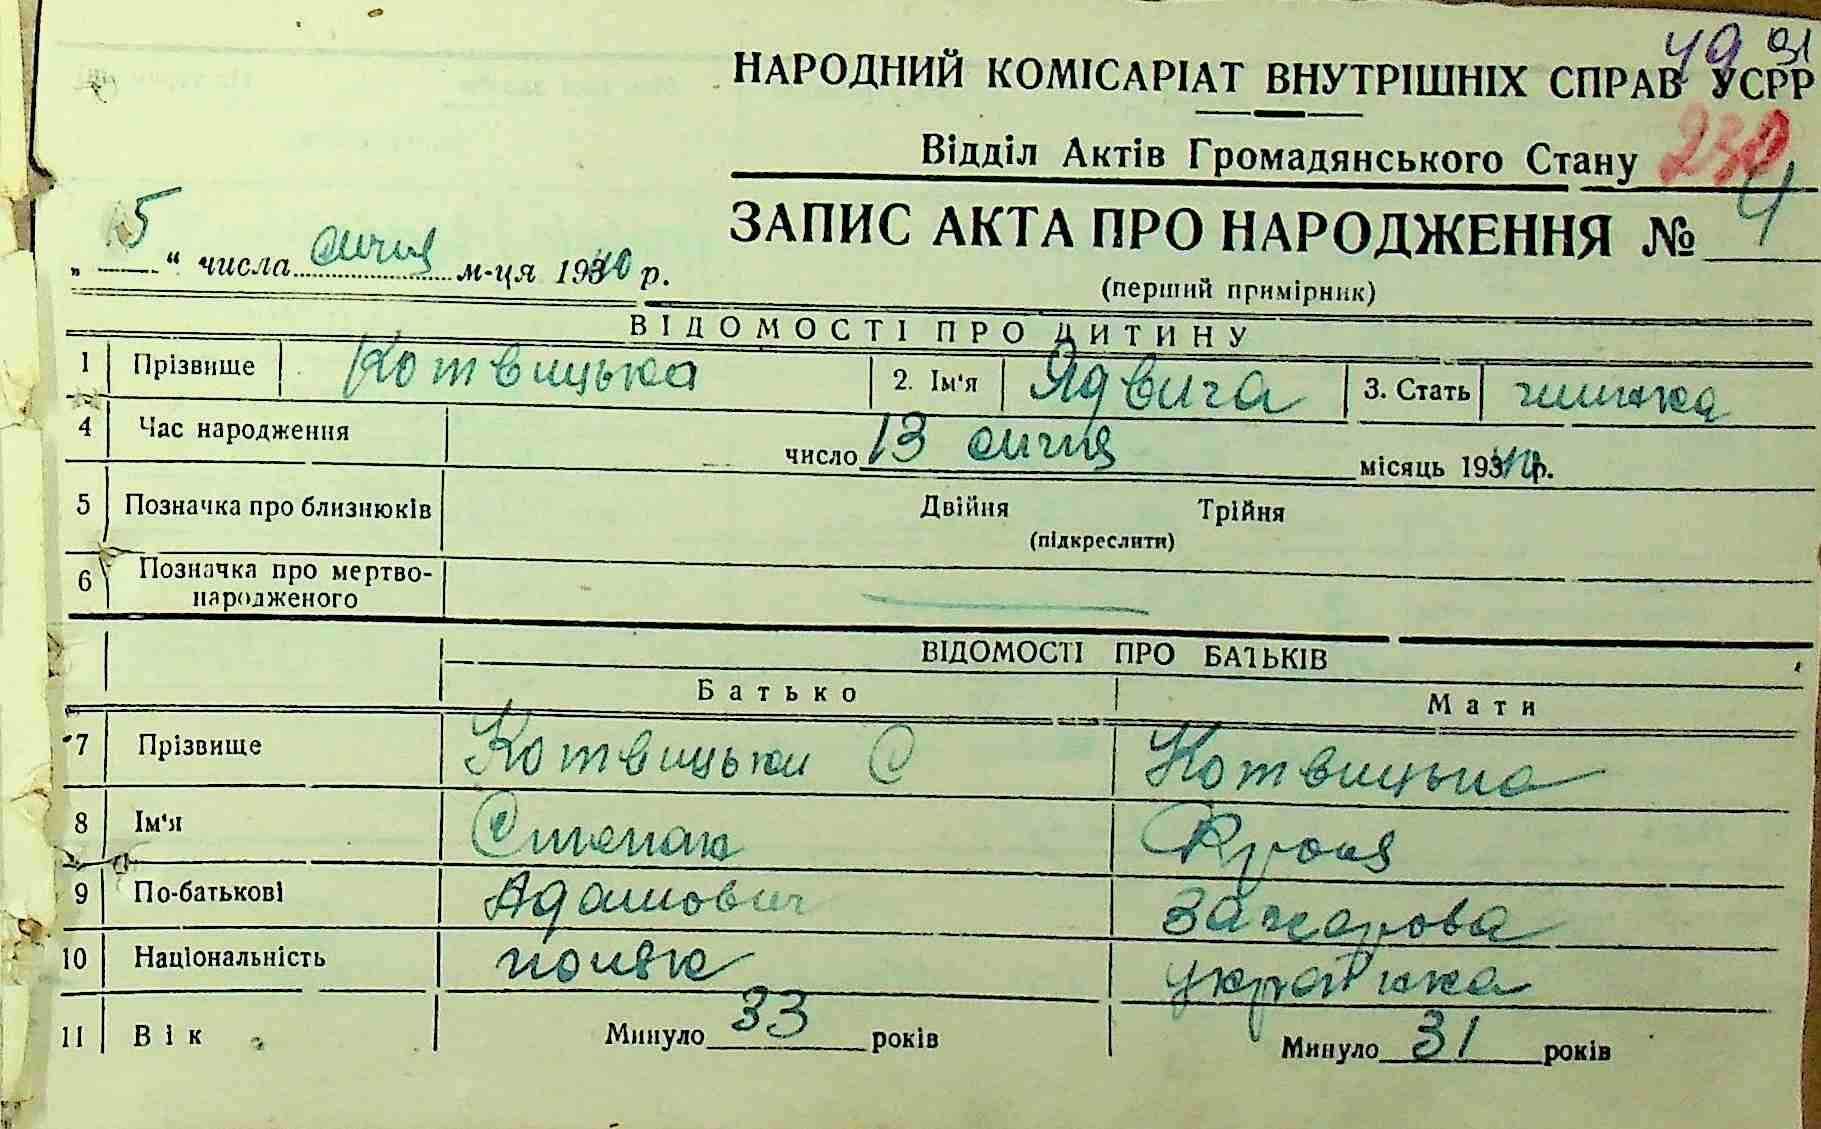 49 91
НАРОДНИЙ КОМІСАРІАТ ВНУТРІШНІХ СПРАВ УСРР
Відділ Актів Громадянського Стану 232
ЗАПИС АКТА ПРО НАРОДЖЕННЯ № 4
„15“ числа січня м-ця 1940 р.
(перший примірник)
ВІДОМОСТІ ПРО ДИТИНУ
1 Прізвище Котвицька 2. Ім'я Ядвига 3. Стать жинка
4 Час народження число 13 січня місяць 1940 р.
5 Позначка про близнюків Двійня Трійня
(підкреслити)
6 Позначка про мертво-
народженого
ВІДОМОСТІ ПРО БАТЬКІВ
Батько Мати
7 Прізвище Котвицьки С Котвицька
8 Ім'я Степан
9 По-батькові Адамович Захарова
10 Національність поляк українка
11 Вік Минуло 33 років Минуло 31 років